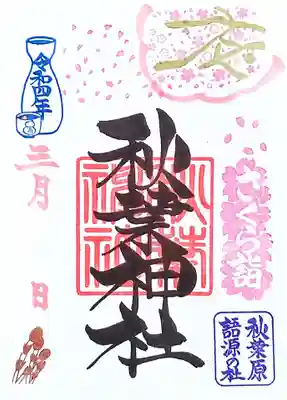 令和四年
三月
日
秋葉神社
さくら詣
秋葉原
語源の社